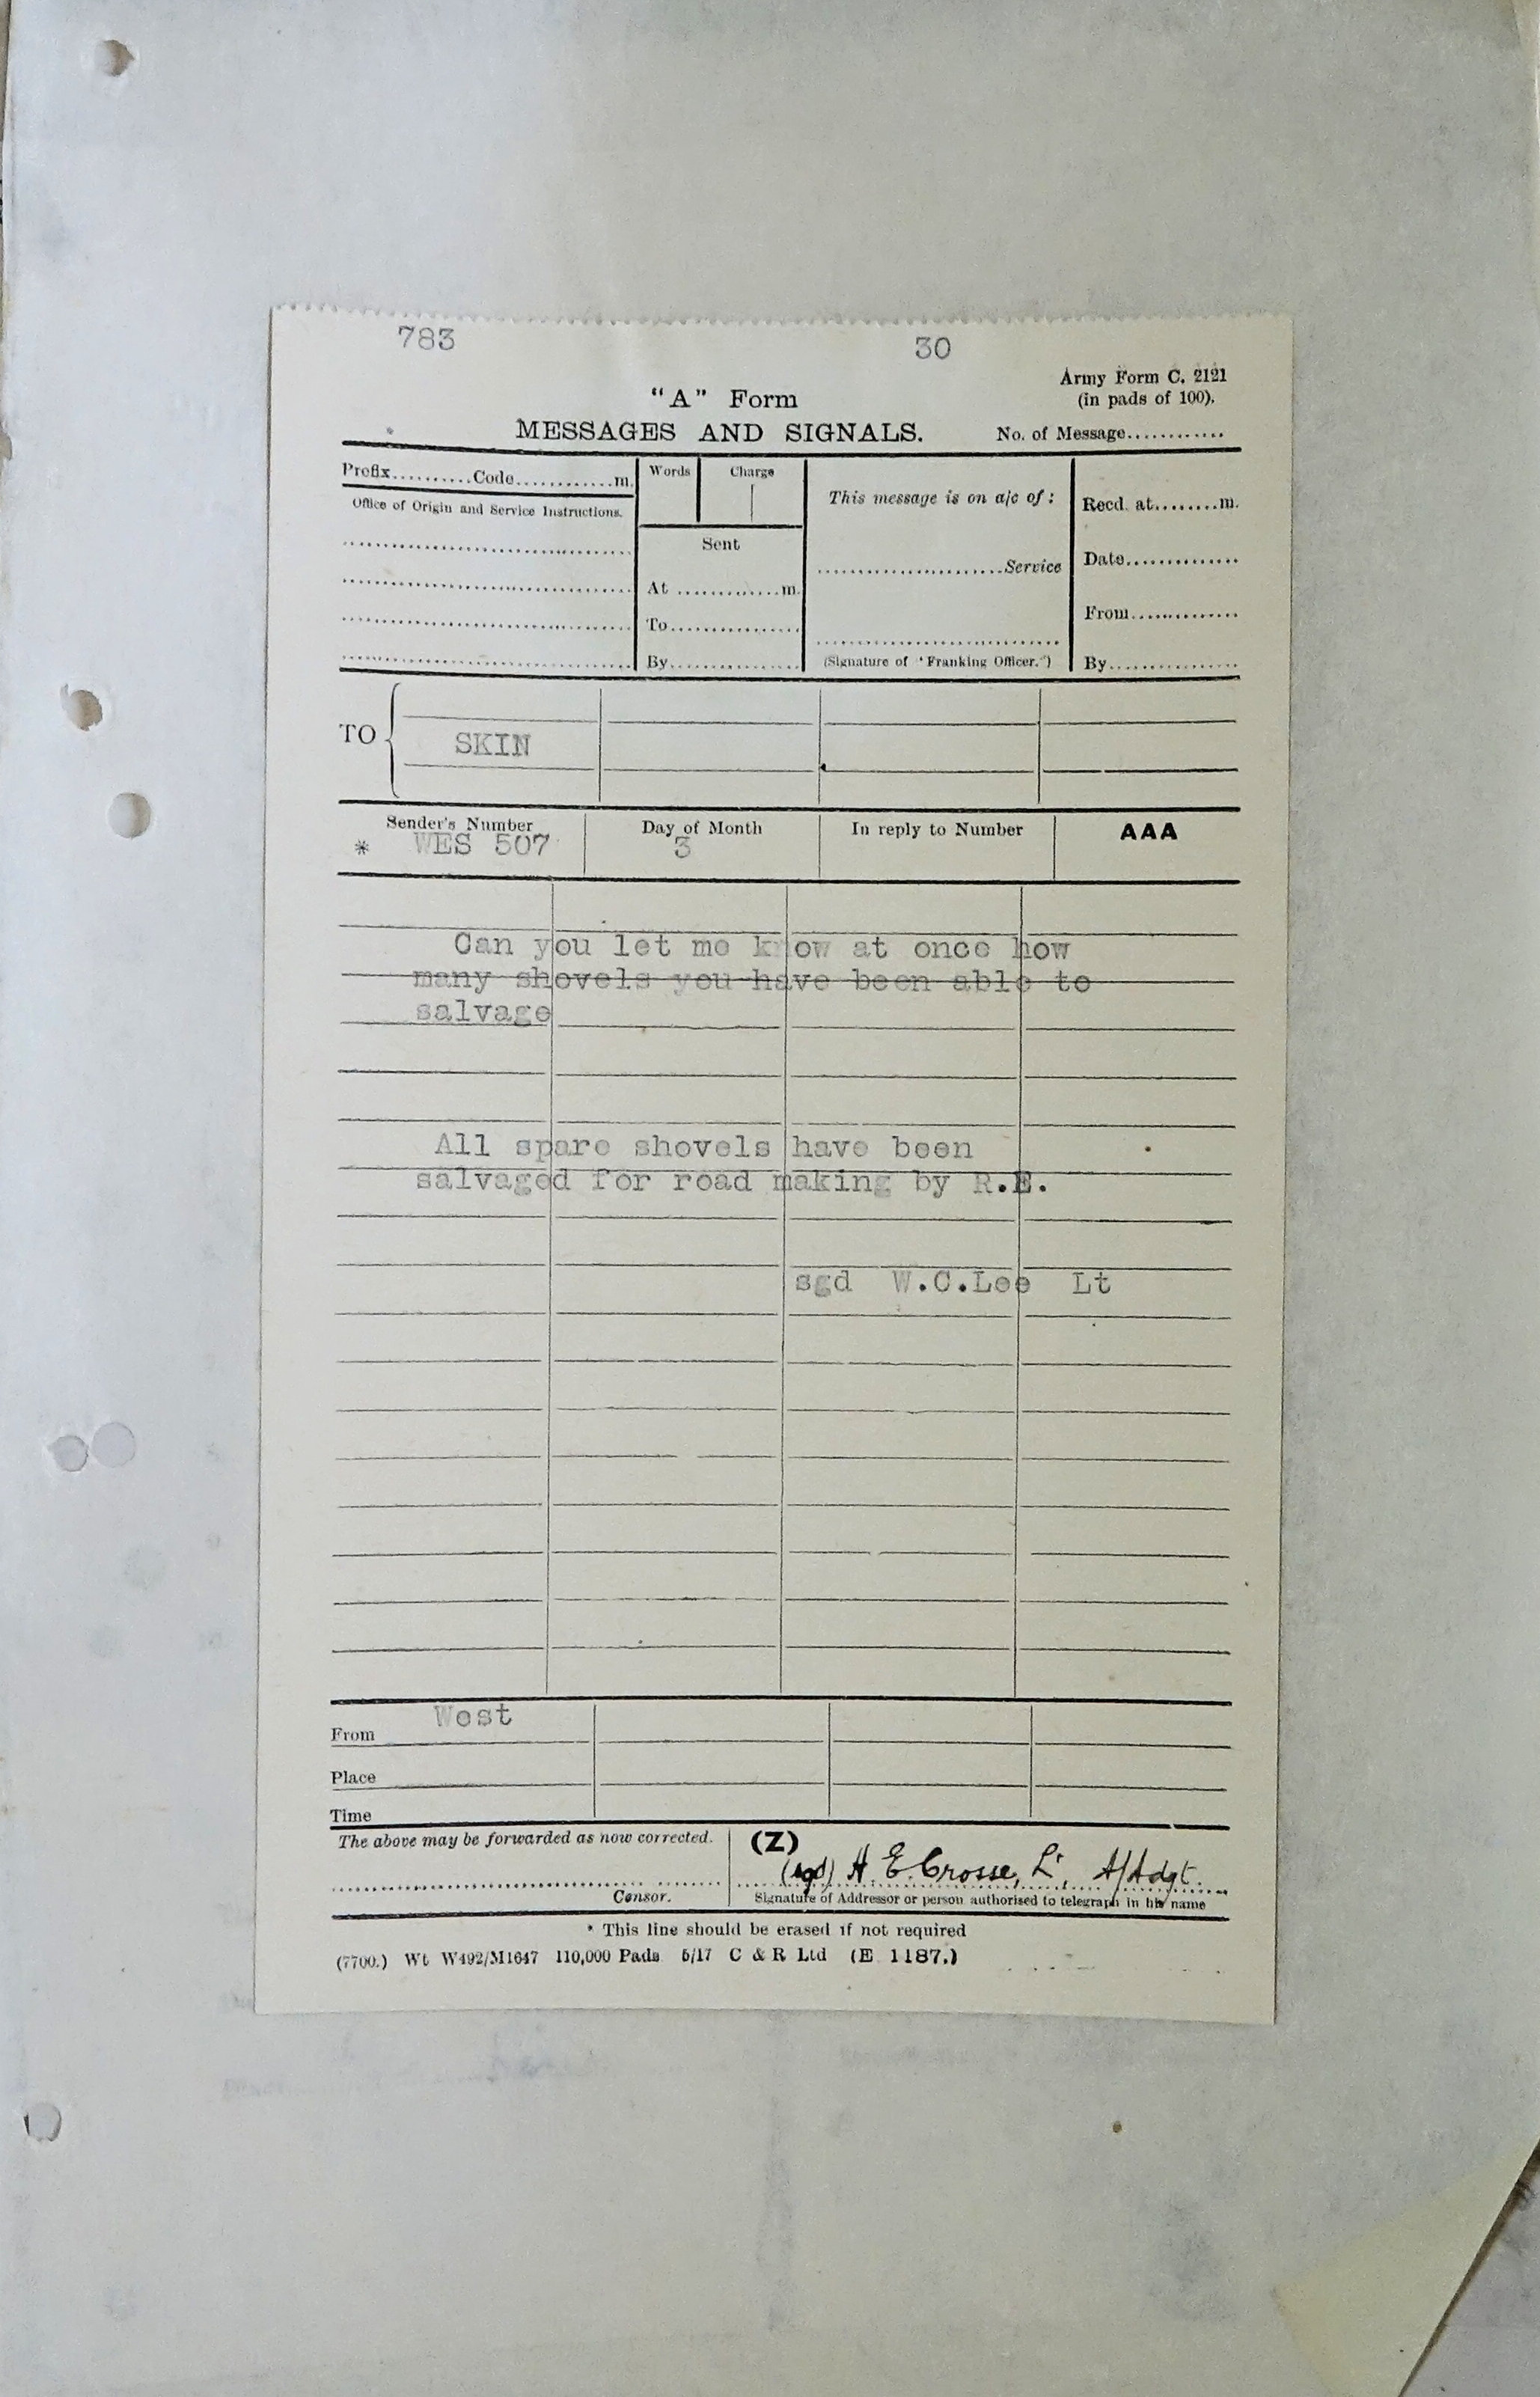 783 30
Army Form C. 2121
"A" Form (in pads of 100).
MESSAGES AND SIGNALS. No. of Message............
Prefix..........Code............m. Words Charge
This message is on a/c of : Recd. at........m.
Office of Origin and Service Instructions.
Sent
........................Service Date..............
At .............m.
To................ From..............
By................ (Signature of "Franking Officer.") By................
TO SKIN
Sender's Number Day of Month In reply to Number AAA
* WES 507 3
Can you let me know at once how
many shovels you have been able to
salvage
All spare shovels have been
salvaged for road making by R.E.
sgd W.C.Lee Lt
From West
Place
Time
The above may be forwarded as now corrected. (Z)
(sgd) H. E. Crosse, Lt, A/Adgt.
Censor. Signature of Addressor or person authorised to telegraph in his name
* This line should be erased if not required
(7700.) Wt W492/M1647 110,000 Pads 5/17 C & R Ltd (E 1187.)